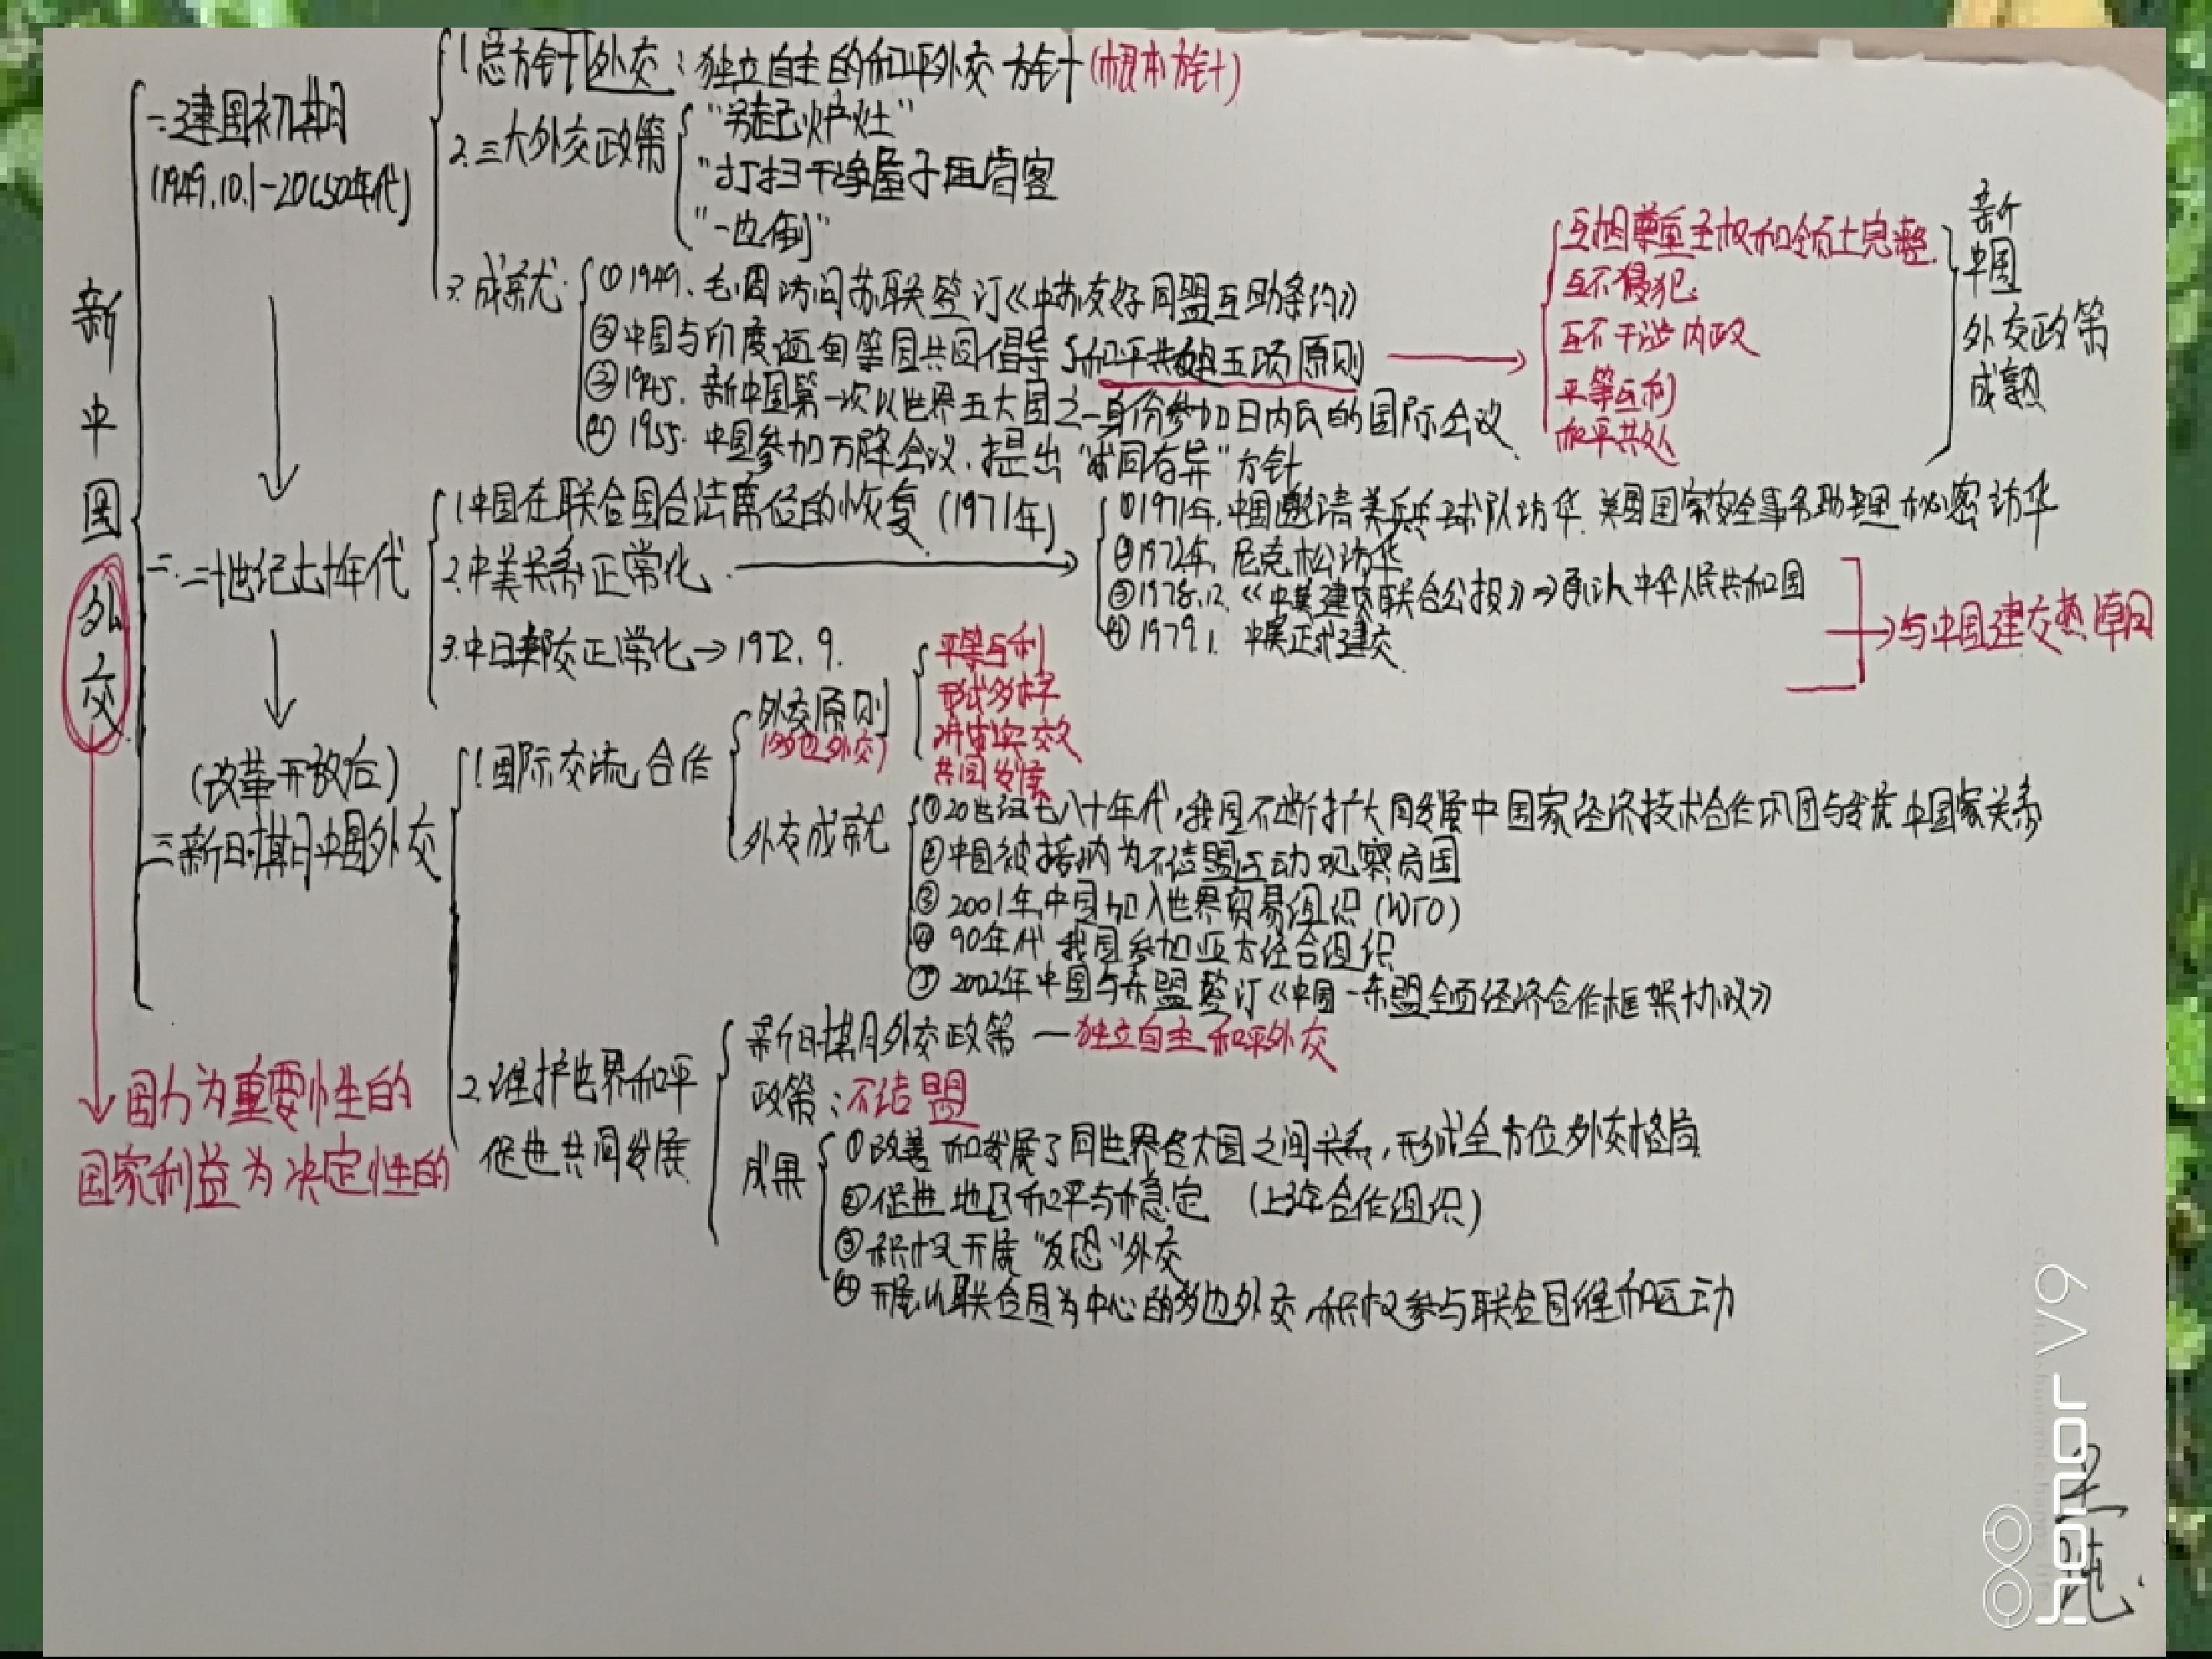 新中国外交
一.建国初期
(1949.10.1-20C50年代)
1.总方针 外交:独立自主的和平外交方针(根本方针)
2.三大外交政策
"另起炉灶"
"打扫干净屋子再请客
"一边倒"
3.成就:
①1949、毛周访问苏联签订《中苏友好同盟互助条约》
②中国与印度缅甸等国共同倡导了和平共处五项原则
互相尊重主权和领土完整
互不侵犯
互不干涉内政
平等互利
和平共处
新中国
外交政策
成熟
③1945.新中国第一次以世界五大国之一身份参加日内瓦的国际会议
④1955.中国参加万隆会议,提出"求同存异"方针
二.二十世纪七十年代
1.中国在联合国合法席位的恢复(1971年)
2.中美关系正常化
①1971年,中国邀请美乒乓球队访华.美国国家安全事务助理秘密访华
②1972年,尼克松访华
③1978.12.《中美建交联合公报》⇒承认中华人民共和国
④1979.1 中美正式建交
3.中日邦交正常化→1972.9.
→与中国建交热潮
(改革开放后)
三新时期中国外交
1.国际交流合作
外交原则
(多边外交)
平等与利
形式多样
讲审实效
共同发展
外交成就
①20世纪七八十年代,我国不断扩大同发展中国家经济技术合作巩固与发展中国家关系
②中国被接纳为不结盟运动观察员国
③2001年中国加入世界贸易组织(WTO)
④90年代 我国参加亚太经合组织
⑤2002年中国与东盟签订《中国-东盟全面经济合作框架协议》
2.维护世界和平
促进共同发展
新时期外交政策—独立自主和平外交
政策:不结盟
成果
①改善和发展了同世界各大国之间关系,形成全方位外交格局
②促进地区和平与稳定 (上海合作组织)
③积极开展"反恐"外交
④开展以联合国为中心的多边外交,积极参与联合国维和运动
国力为重要性的
国家利益为决定性的
honor V9